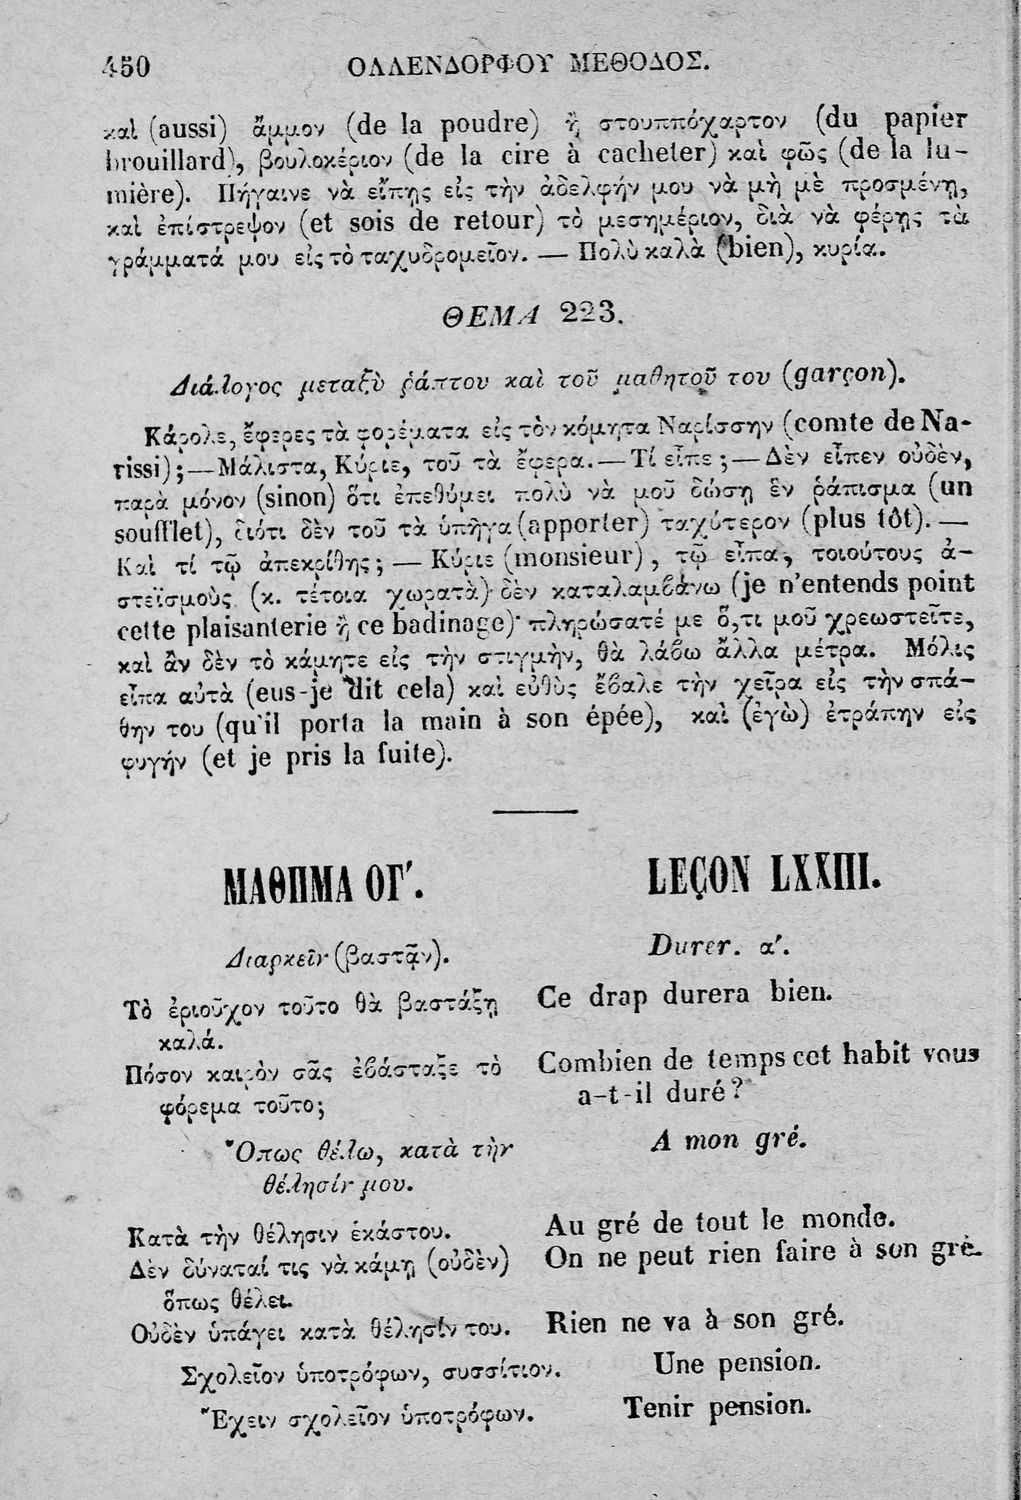 450 ΟΛΛΕΝΔΟΡΦΟΥ ΜΕΘΟΔΟΣ.
καὶ (aussi) ἄμμον (de la poudre) ἢ στουππόχαρτον (du papier
brouillard), βουλοκέριον (de la cire à cacheter) καὶ φῶς (de la lu-
mière). Πήγαινε νὰ εἴπῃς εἰς τὴν ἀδελφήν μου νὰ μὴ μὲ προσμένῃ,
καὶ ἐπίστρεψον (et sois de retour) τὸ μεσημέριον, διὰ νὰ φέρῃς τὰ
γράμματά μου εἰς τὸ ταχυδρομεῖον. — Πολὺ καλὰ (bien), κυρία.
ΘΕΜΑ 223.
Διάλογος μεταξὺ ῥάπτου καὶ τοῦ μαθητοῦ του (garçon).
Κάρολε, ἔφερες τὰ φορέματα εἰς τὸν κόμητα Ναρίσσην (comte de Na-
rissi); — Μάλιστα, Κύριε, τοῦ τὰ ἔφερα. — Τί εἶπε; — Δὲν εἶπεν οὐδὲν,
παρὰ μόνον (sinon) ὅτι ἐπεθύμει πολὺ νὰ μοῦ δώσῃ ἓν ῥάπισμα (un
soufflet), διότι δὲν τοῦ τὰ ὑπῆγα (apporter) ταχύτερον (plus tôt). —
Καὶ τί τῷ ἀπεκρίθης; — Κύριε (monsieur), τῷ εἶπα, τοιούτους ἀ-
στεϊσμοὺς (κ. τέτοια χωρατὰ) δὲν καταλαμβάνω (je n'entends point
cette plaisanterie ἢ ce badinage)· πληρώσατέ με ὅ,τι μοῦ χρεωστεῖτε,
καὶ ἂν δὲν τὸ κάμητε εἰς τὴν στιγμὴν, θὰ λάβω ἄλλα μέτρα. Μόλις
εἶπα αὐτὰ (eus-je dit cela) καὶ εὐθὺς ἔβαλε τὴν χεῖρα εἰς τὴν σπά-
θην του (qu'il porta la main à son épée), καὶ (ἐγὼ) ἐτράπην εἰς
φυγήν (et je pris la fuite).
ΜΑΘΗΜΑ ΟΓ'. LEÇON LXXIII.
Διαρκεῖν (βαστᾷν). Durer. α'.
Τὸ ἐριοῦχον τοῦτο θὰ βαστάξῃ Ce drap durera bien.
καλά.
Πόσον καιρὸν σᾶς ἐβάσταξε τὸ Combien de temps cet habit vous
φόρεμα τοῦτο; a-t-il duré?
Ὅπως θέλω, κατὰ τὴν A mon gré.
θέλησίν μου.
Κατὰ τὴν θέλησιν ἑκάστου. Au gré de tout le monde.
Δὲν δύναταί τις νὰ κάμῃ (οὐδὲν) On ne peut rien faire à son gré.
ὅπως θέλει.
Οὐδὲν ὑπάγει κατὰ θέλησίν του. Rien ne va à son gré.
Σχολεῖον ὑποτρόφων, συσσίτιον. Une pension.
Ἔχειν σχολεῖον ὑποτρόφων. Tenir pension.